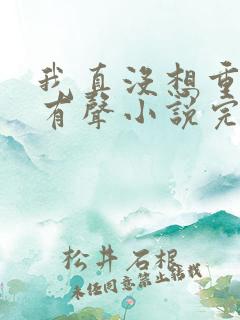 我真沒想重
有聲小說完
松井石根
未任同意禁止轉載